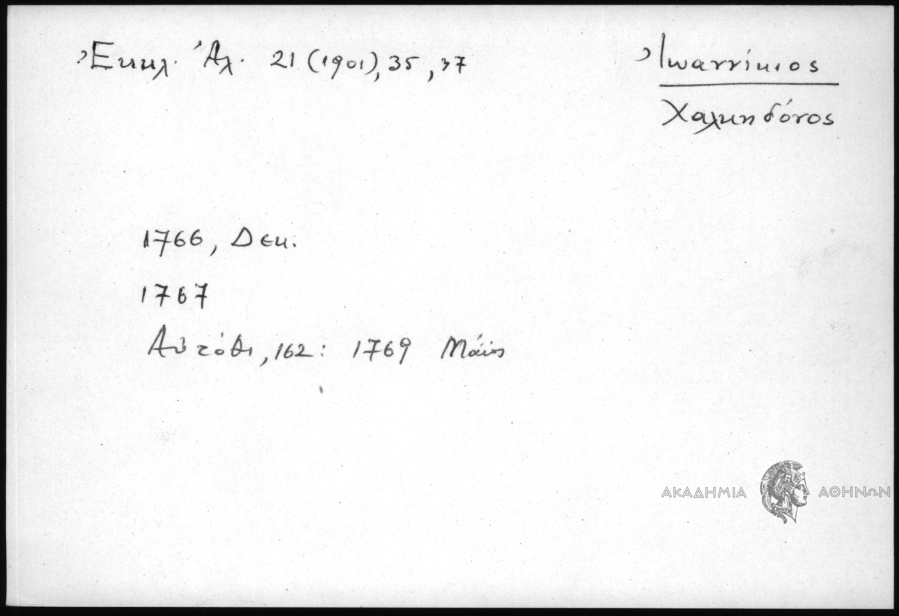 Ἐκκλ. Ἀλ. 21 (1901), 35, 37
Ἰωαννίκιος
Χαλκηδόνος
1766, Δεκ.
1767
Αὐτόθι, 162: 1769 Μάϊος
ΑΚΑΔΗΜΙΑ ΑΘΗΝΩΝ